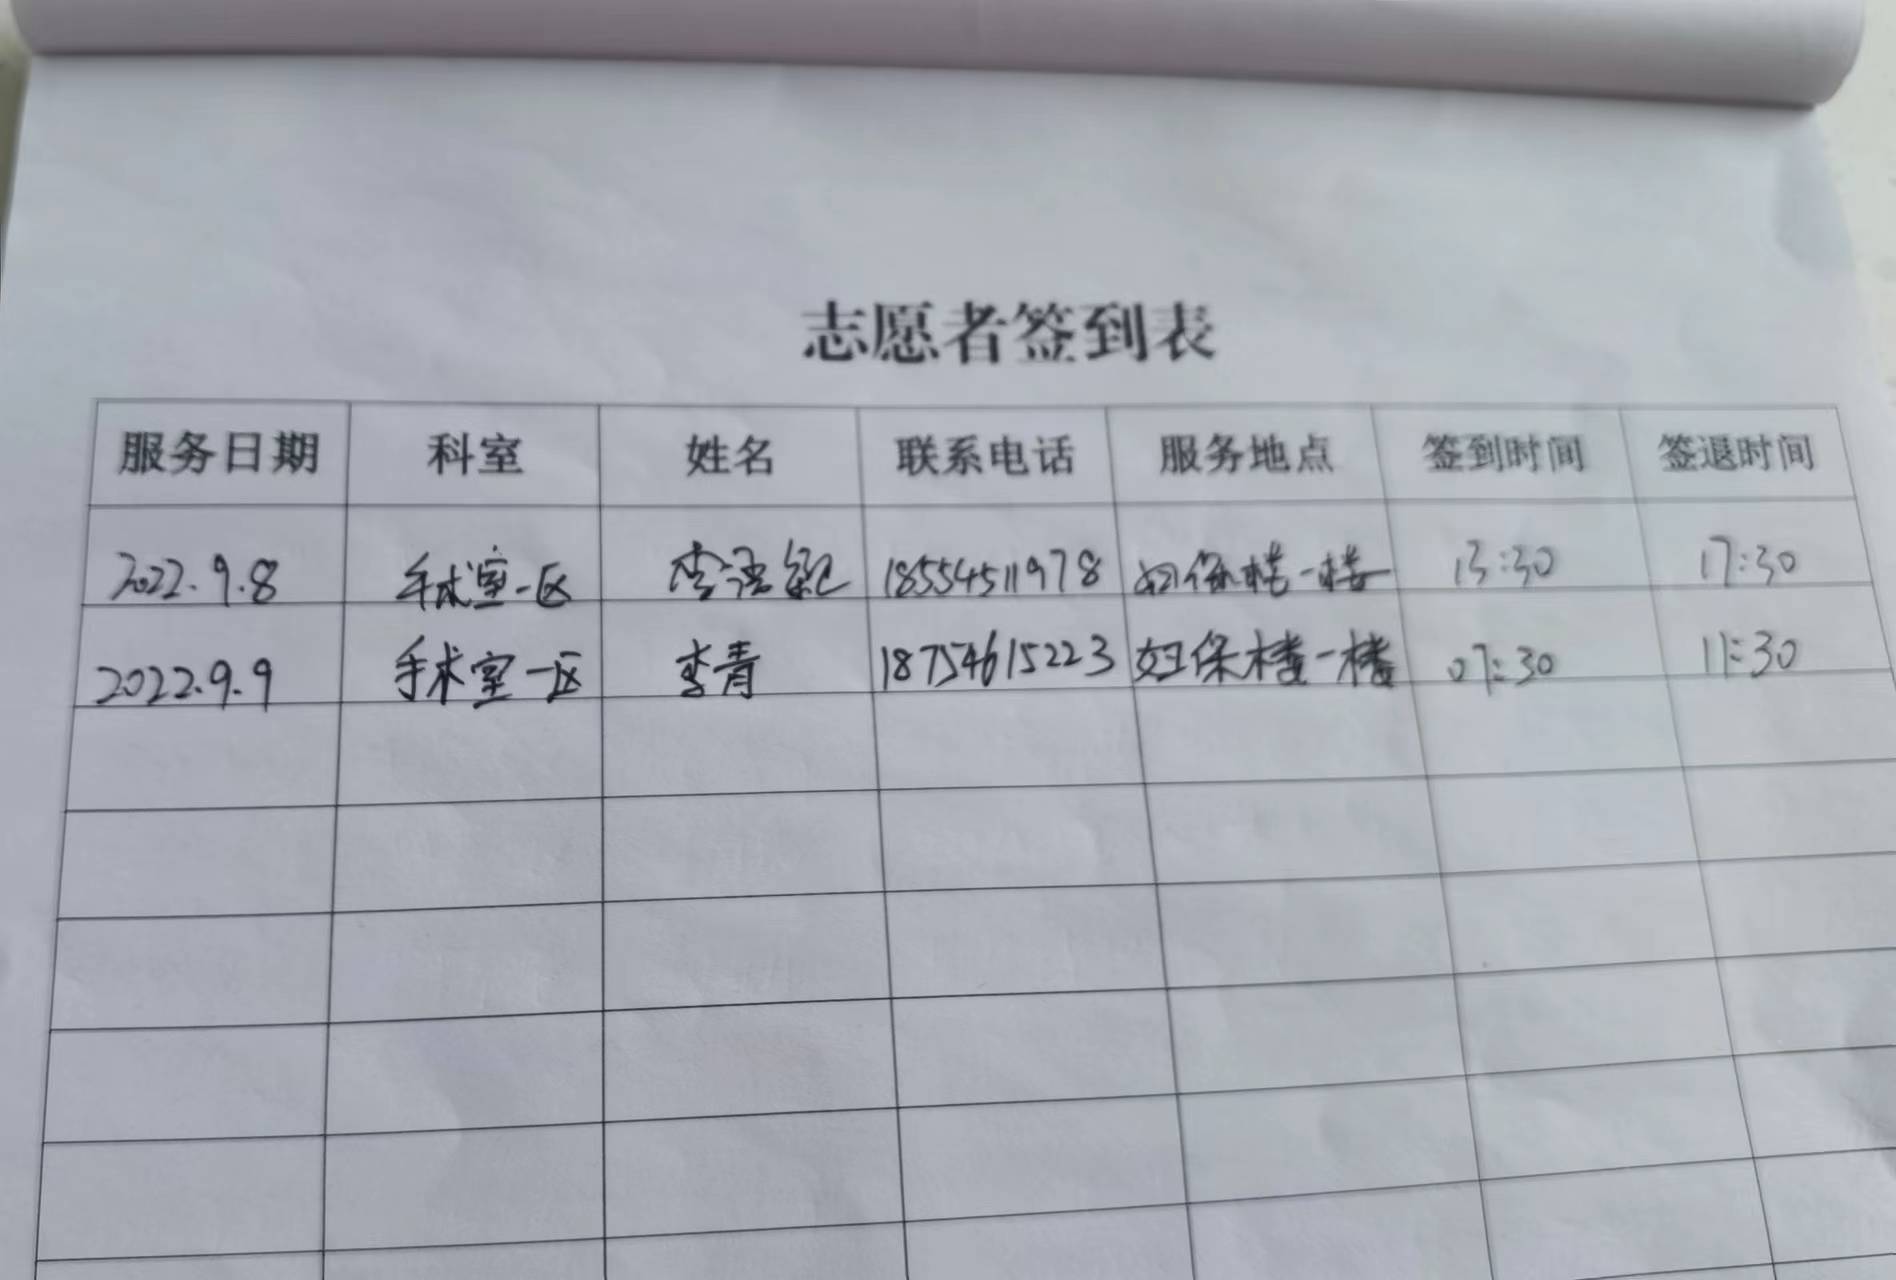 志愿者签到表
服务日期 科室 姓名 联系电话 服务地点 签到时间 签退时间
2022.9.8 手术室一区 18554511978 妇保楼一楼 13:30 17:30
2022.9.9 手术室一区 李青 18754615223 妇保楼一楼 07:30 11:30